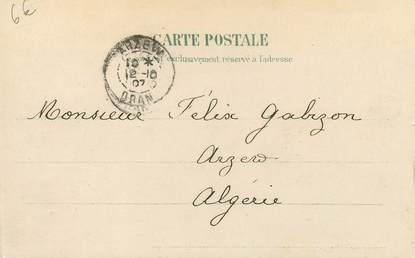 6€
CARTE POSTALE
exclusivement réservé à l'adresse
ARZEW
10 *
12-10
07
ORAN
Monsieur Félix Gabizon
Arzew
Algérie